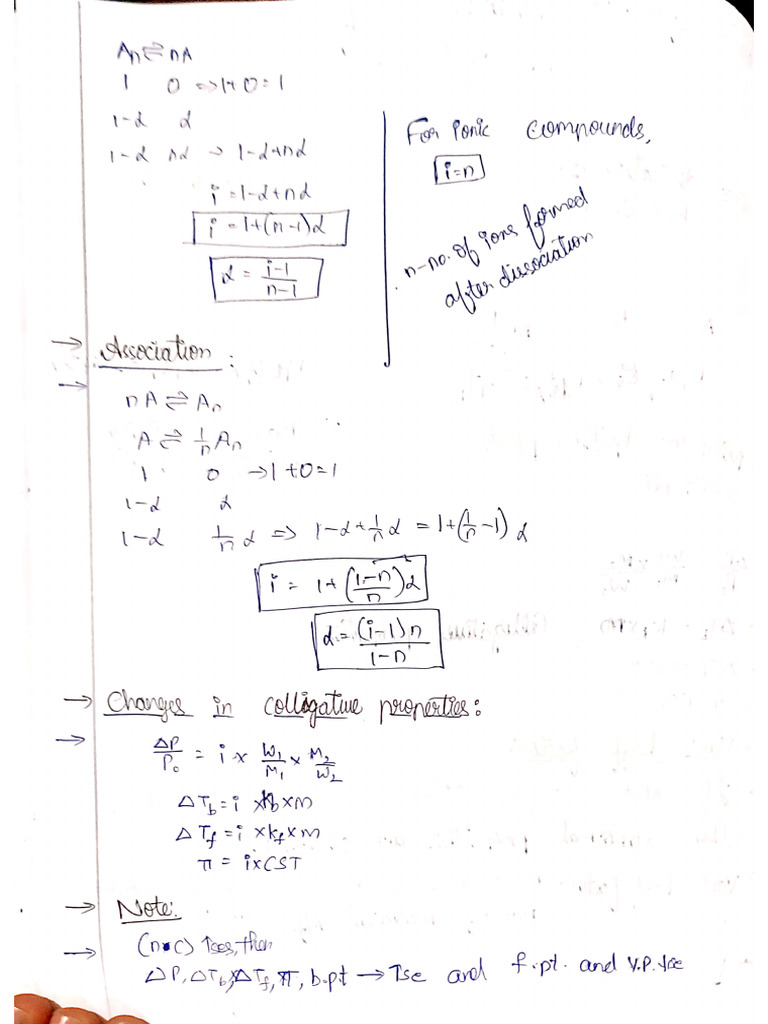 An ⇌ nA
1 0 ⇒ 1+0=1
1-α α
1-α nα → 1-α+nα
i = 1-α+nα
i = 1+(n-1)α
α = (i-1)/(n-1)
For ionic compounds,
i=n
n-no. of ions formed
after dissociation
→ Association:
→ nA ⇌ An
A ⇌ 1/n An
1 0 → 1+0=1
1-α α
1-α 1/n α ⇒ 1-α+1/n α = 1+(1/n -1)α
i = 1+((1-n)/n)α
α = (i-1)n/(1-n)
→ Changes in colligative properties:
→ ΔP/P₀ = i × W₁/M₁ × M₂/W₂
ΔTb = i × kb × m
ΔTf = i × kf × m
π = i×CST
→ Note:
→ (n·c) ↑ses, then
ΔP, ΔTb, ΔTf, π, b.pt → ↑se and f.pt. and V.P. ↓se